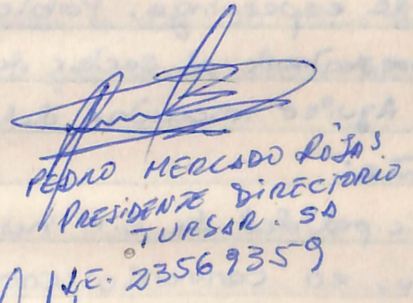 PEDRO MERCADO ROJAS
PRESIDENTE DIRECTORIO
TURSAR. SA
L.E. 23569359